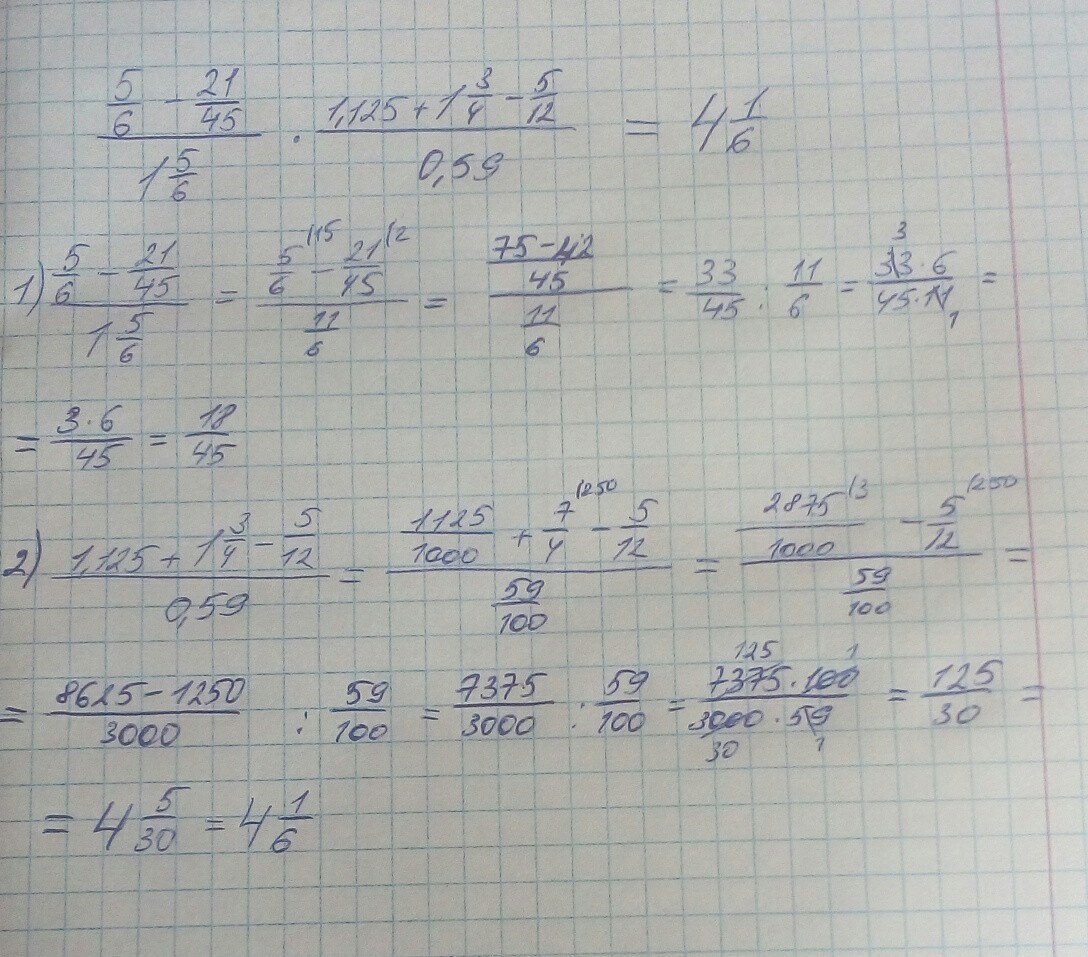 (5/6 − 21/45)/(1 5/6) · (1,125 + 1 3/4 − 5/12)/(0,59) = 4 1/6
1) (5/6 − 21/45)/(1 5/6) = (5/6 (15 − 21/45 (2)/(11/6) = ((75−42)/45)/(11/6) = 33/45 : 11/6 = (33 3 · 6)/(45 · 11 1) =
= (3·6)/45 = 18/45
2) (1,125 + 1 3/4 − 5/12)/(0,59) = (1125/1000 + 7/4 (250 − 5/12)/(59/100) = (2875/1000 (3 − 5/12 (250)/(59/100) =
= (8625−1250)/3000 : 59/100 = 7375/3000 : 59/100 = (7375 125 · 100 1)/(3000 30 · 59 1) = 125/30 =
= 4 5/30 = 4 1/6